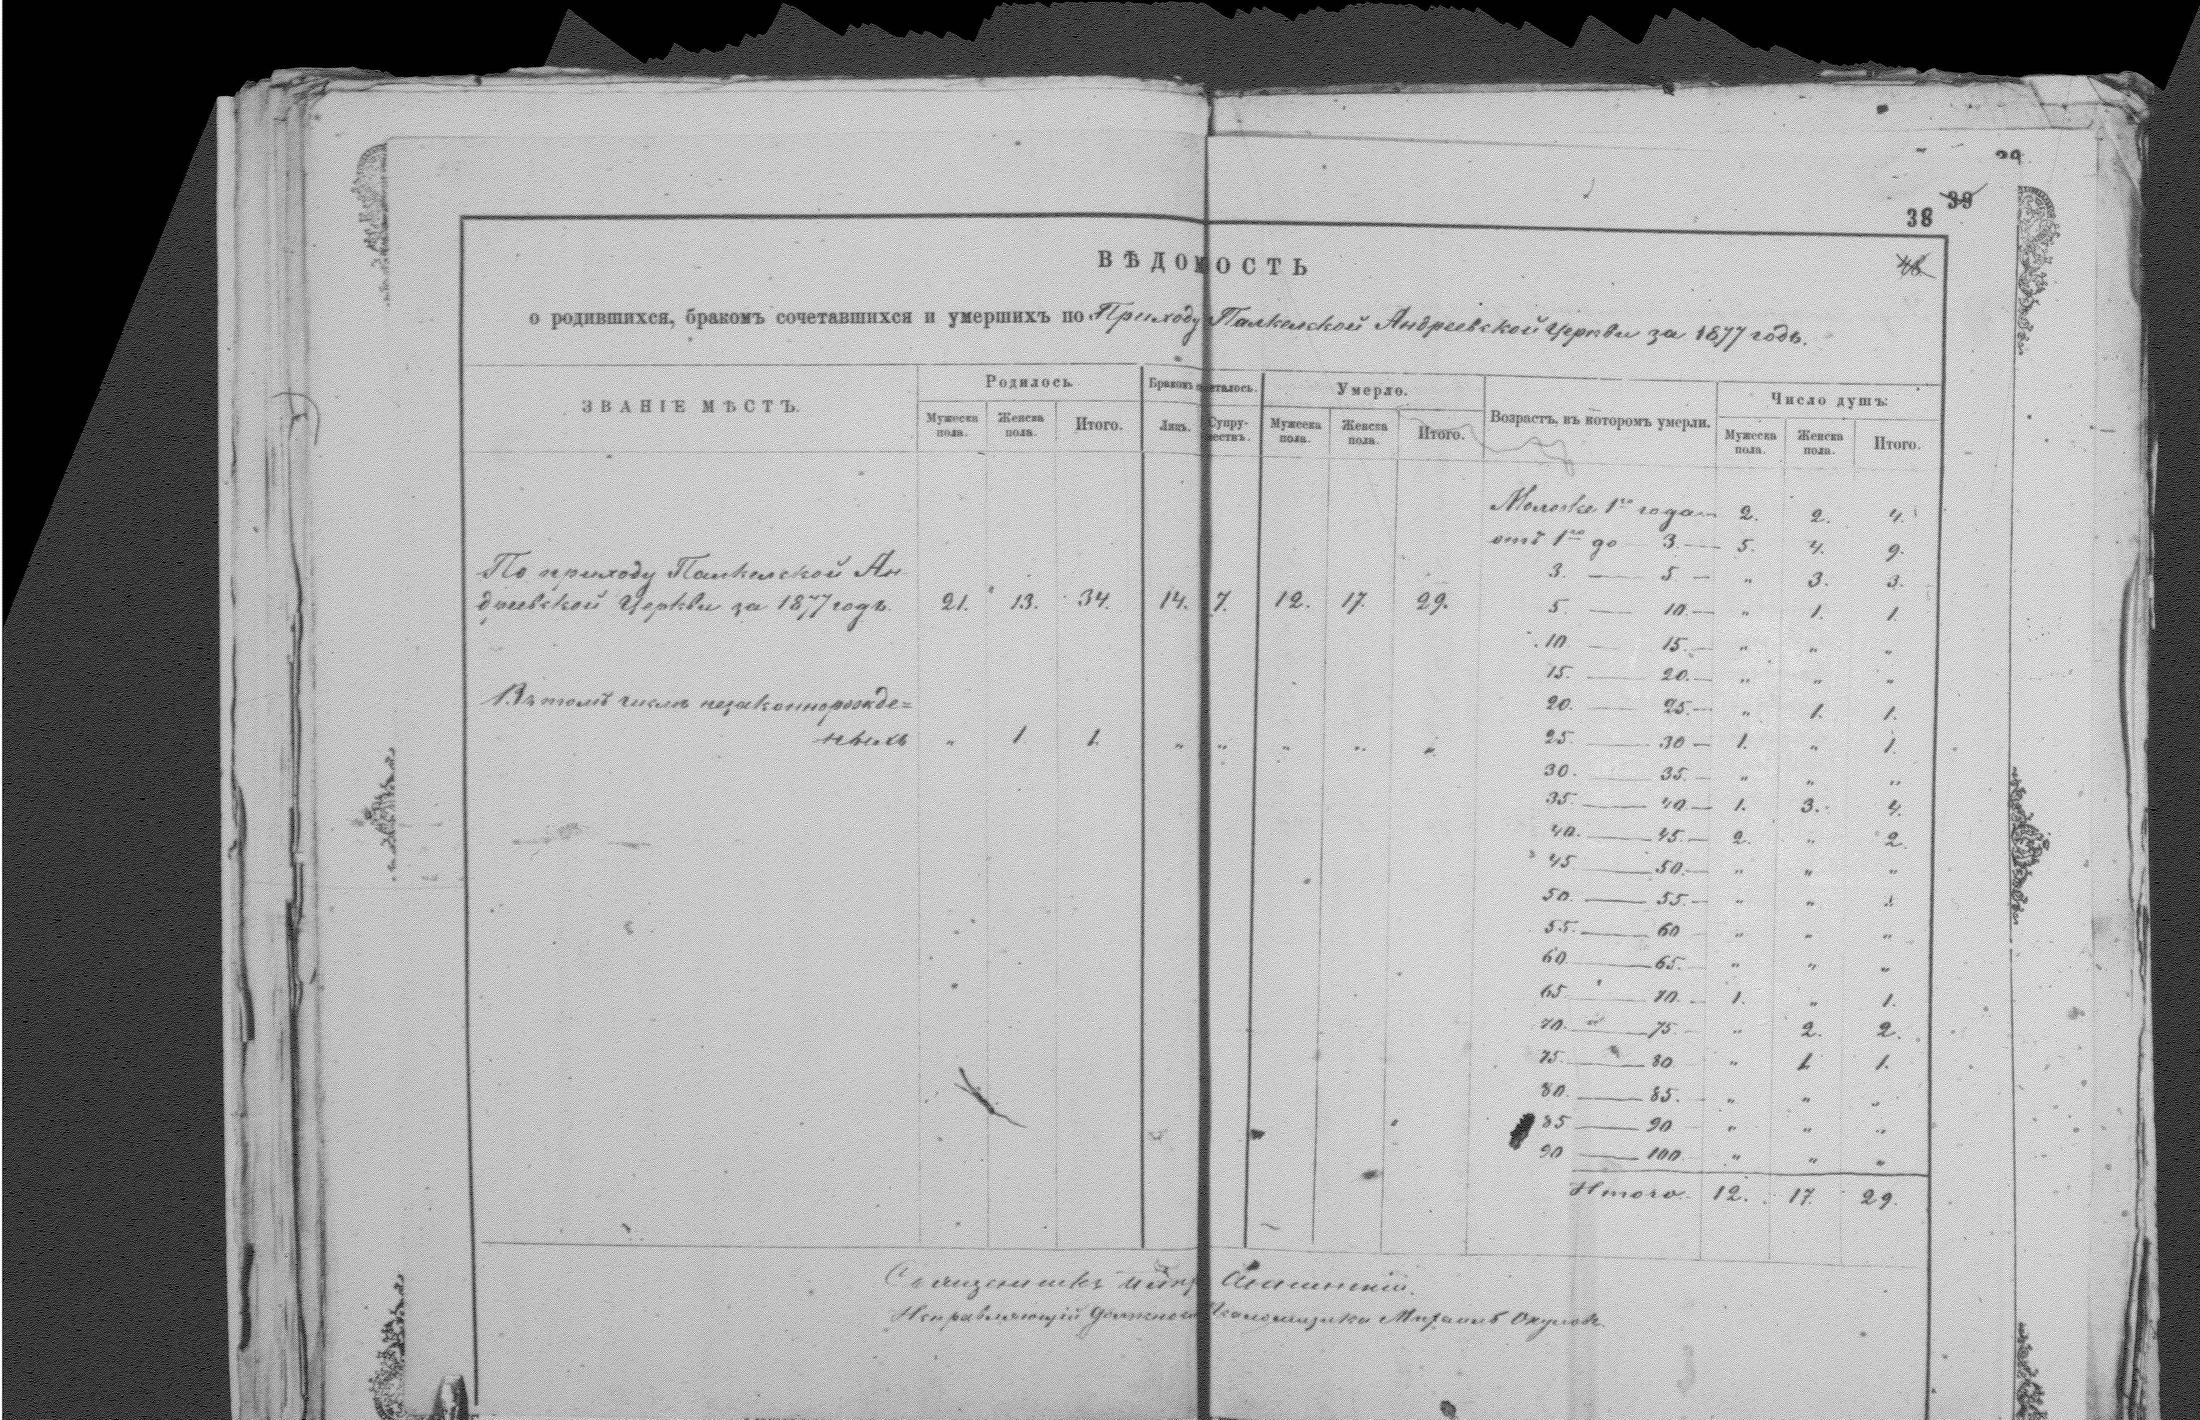 39
38
ВѢДОМОСТЬ
о родившихся, бракомъ сочетавшихся и умершихъ по Приходу Палкелской Андреевской Церкви за 1877 годъ.
ЗВАНІЕ МѢСТЪ. Родилось. Бракомъ сочеталось. Умерло. Возрастъ, въ которомъ умерли. Число душъ:
Мужеска пола. Женска пола. Итого. Лицъ. Супружествъ. Мужеска пола. Женска пола. Итого. Мужеска пола. Женска пола. Итого.
Моложе 1го года 2. 2. 4.
отъ 1го до 3. 5. 4. 9.
3. 5 „ 3. 3.
По приходу Палкелской Ан-
дреевской Церкви за 1877 годъ. 21. 13. 34. 14. 7. 12. 17. 29.
5. 10. „ 1. 1.
10. 15. „ „ „
15. 20. „ „ „
Въ томъ числѣ незаконнорожде=
20. 25. „ 1. 1.
нныхъ „ 1 1. „ „ „ „ „
25. 30 1. „ 1.
30. 35. „ „ „
35. 40 1. 3. 4.
40. 45. 2. „ 2.
45 50. „ „ „
50. 55. „ „ „
55. 60 „ „ „
60 65. „ „ „
65 70. 1. „ 1.
70. 75. „ 2. 2.
75. 80 „ 1. 1.
80. 85. „ „ „
85 90 „ „ „
90 100 „ „ „
Итого. 12. 17. 29.
Священникъ
Исправляющій должность Псаломщика Михаилъ Окуловъ